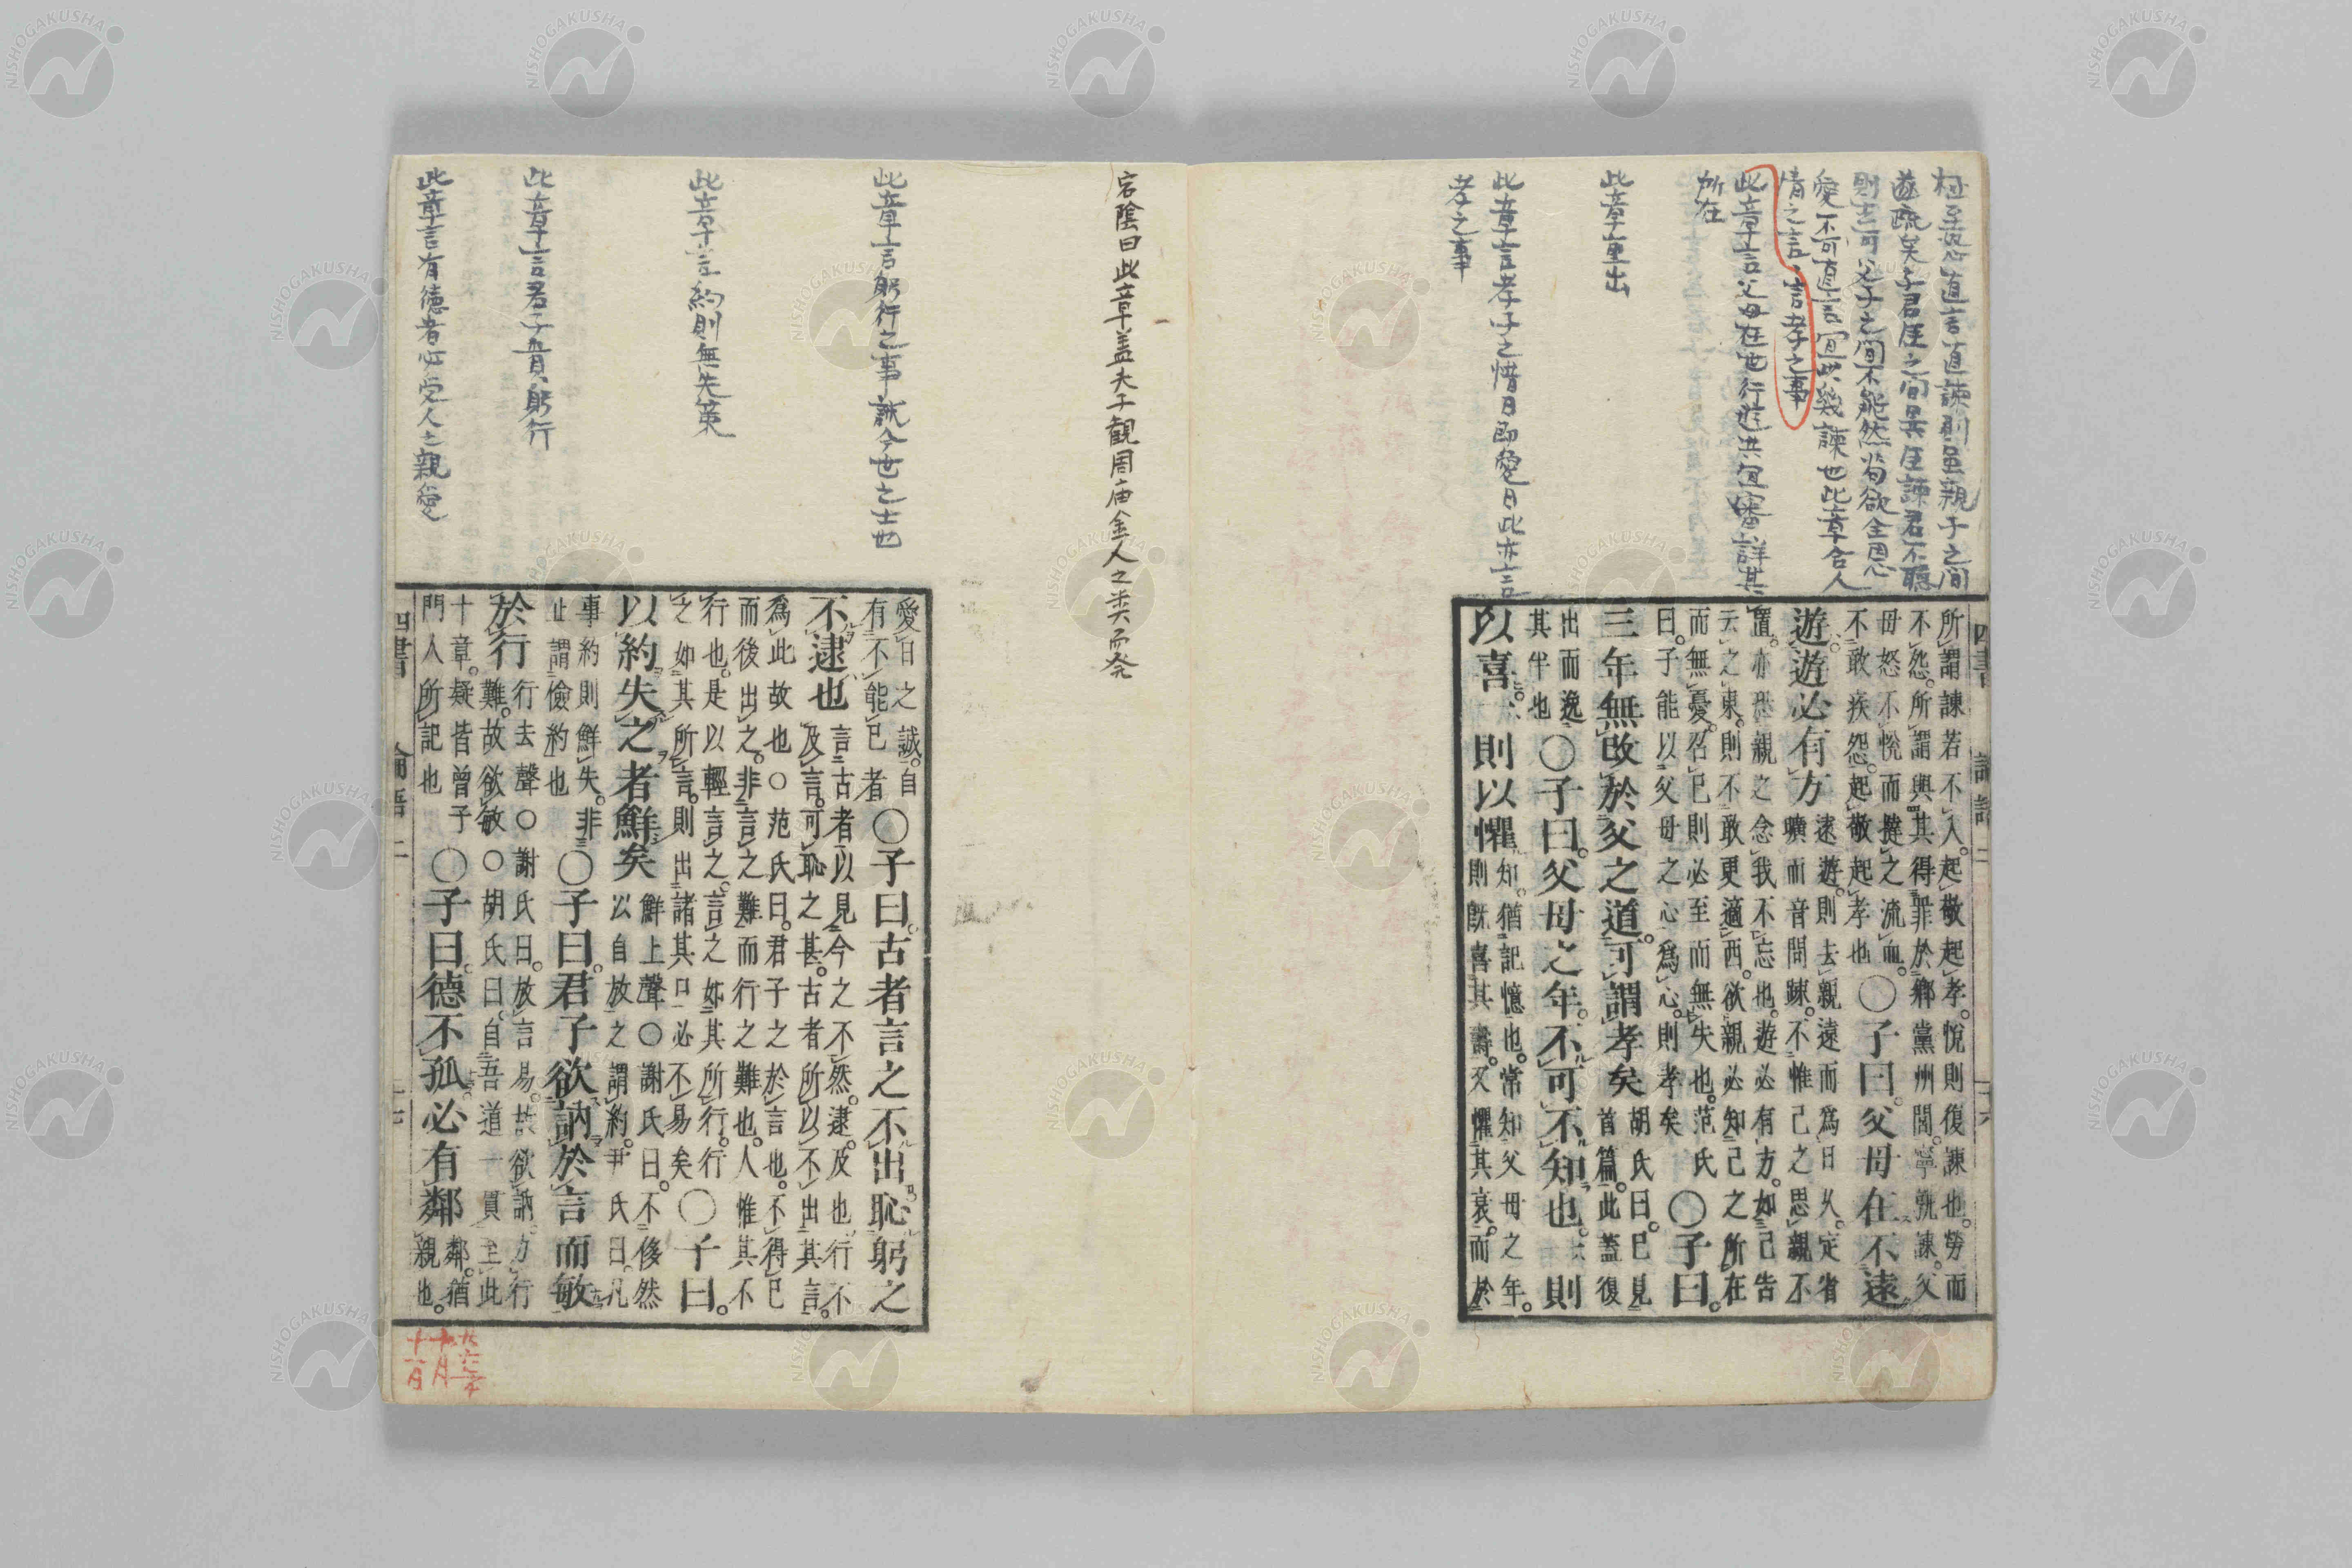 直言直諫則虽親子之間
遊疏矣子君臣之間異臣諫君不聽
則去可父子之間不能然尚欲全恩
愛不可直言宜以幾諫也此章含人
情之言 言孝之事
此章言父母在世行遊共宜審詳其
所在
此章重出
此章言孝子之惜日即愛日此亦言
孝之事
所謂諫若不入。起敬起孝。悅則復諫也。勞而
不怨。所謂與其得罪於鄉黨州閭。寧熟諫。父
母怒不悅而撻之流血。
不敢疾怨。起敬起孝也
○子曰。父母在不遠
遊。遊必有方
遠遊。則去親遠而爲日久。定省
曠而音問踈。不惟己之思親不
置。亦恐親之念我不忘也。遊必有方。如己告
云之東。則不敢更適西。欲親必知己之所在
而無憂。召己則必至而無失也。范氏
曰。子能以父母之心爲心。則孝矣
○子曰。
三年無改於父之道。可謂孝矣
胡氏曰。已見
首篇。此蓋復
出而逸
其半也
○子曰。父母之年。不可不知也。一則
以喜。一則以懼
知。猶記憶也。常知父母之年。
則既喜其壽。又懼其衰。而於
四書
論語二
十六
宕陰曰此章盖夫子観周庙金人之类而発
此章言躬行之事誡今世之士也
此章言約則無失策
此章言君子貴躬行
此章言有徳者必受人之親愛
愛日之誠。自
有不能已者
○子曰。古者言之不出恥躬之
不逮也
言古者以見今之不然。逮。及也。行不
及言。可恥之甚。古者所以不出其言。
爲此故也○范氏曰。君子之於言也。不得已
而後出之。非言之難而行之難也。人惟其不
行也。是以輕言之。言之如其所行。行
之如其所言。則出諸其口必不易矣
○子曰。
以約失之者鮮矣
鮮上聲○謝氏曰。不侈然
以自放之謂約。尹氏曰。凡
事約則鮮失。非
止謂儉約也
○子曰。君子欲訥於言而敏
於行
行去聲○謝氏曰。放言易。故欲訥。力行
難。故欲敏○胡氏曰。自吾道一貫至此
十章。疑皆曾子
門人所記也
○子曰。德不孤必有鄰
鄰。猶
親也。
四書
論語二
十七
十月
NISHOGAKUSHA